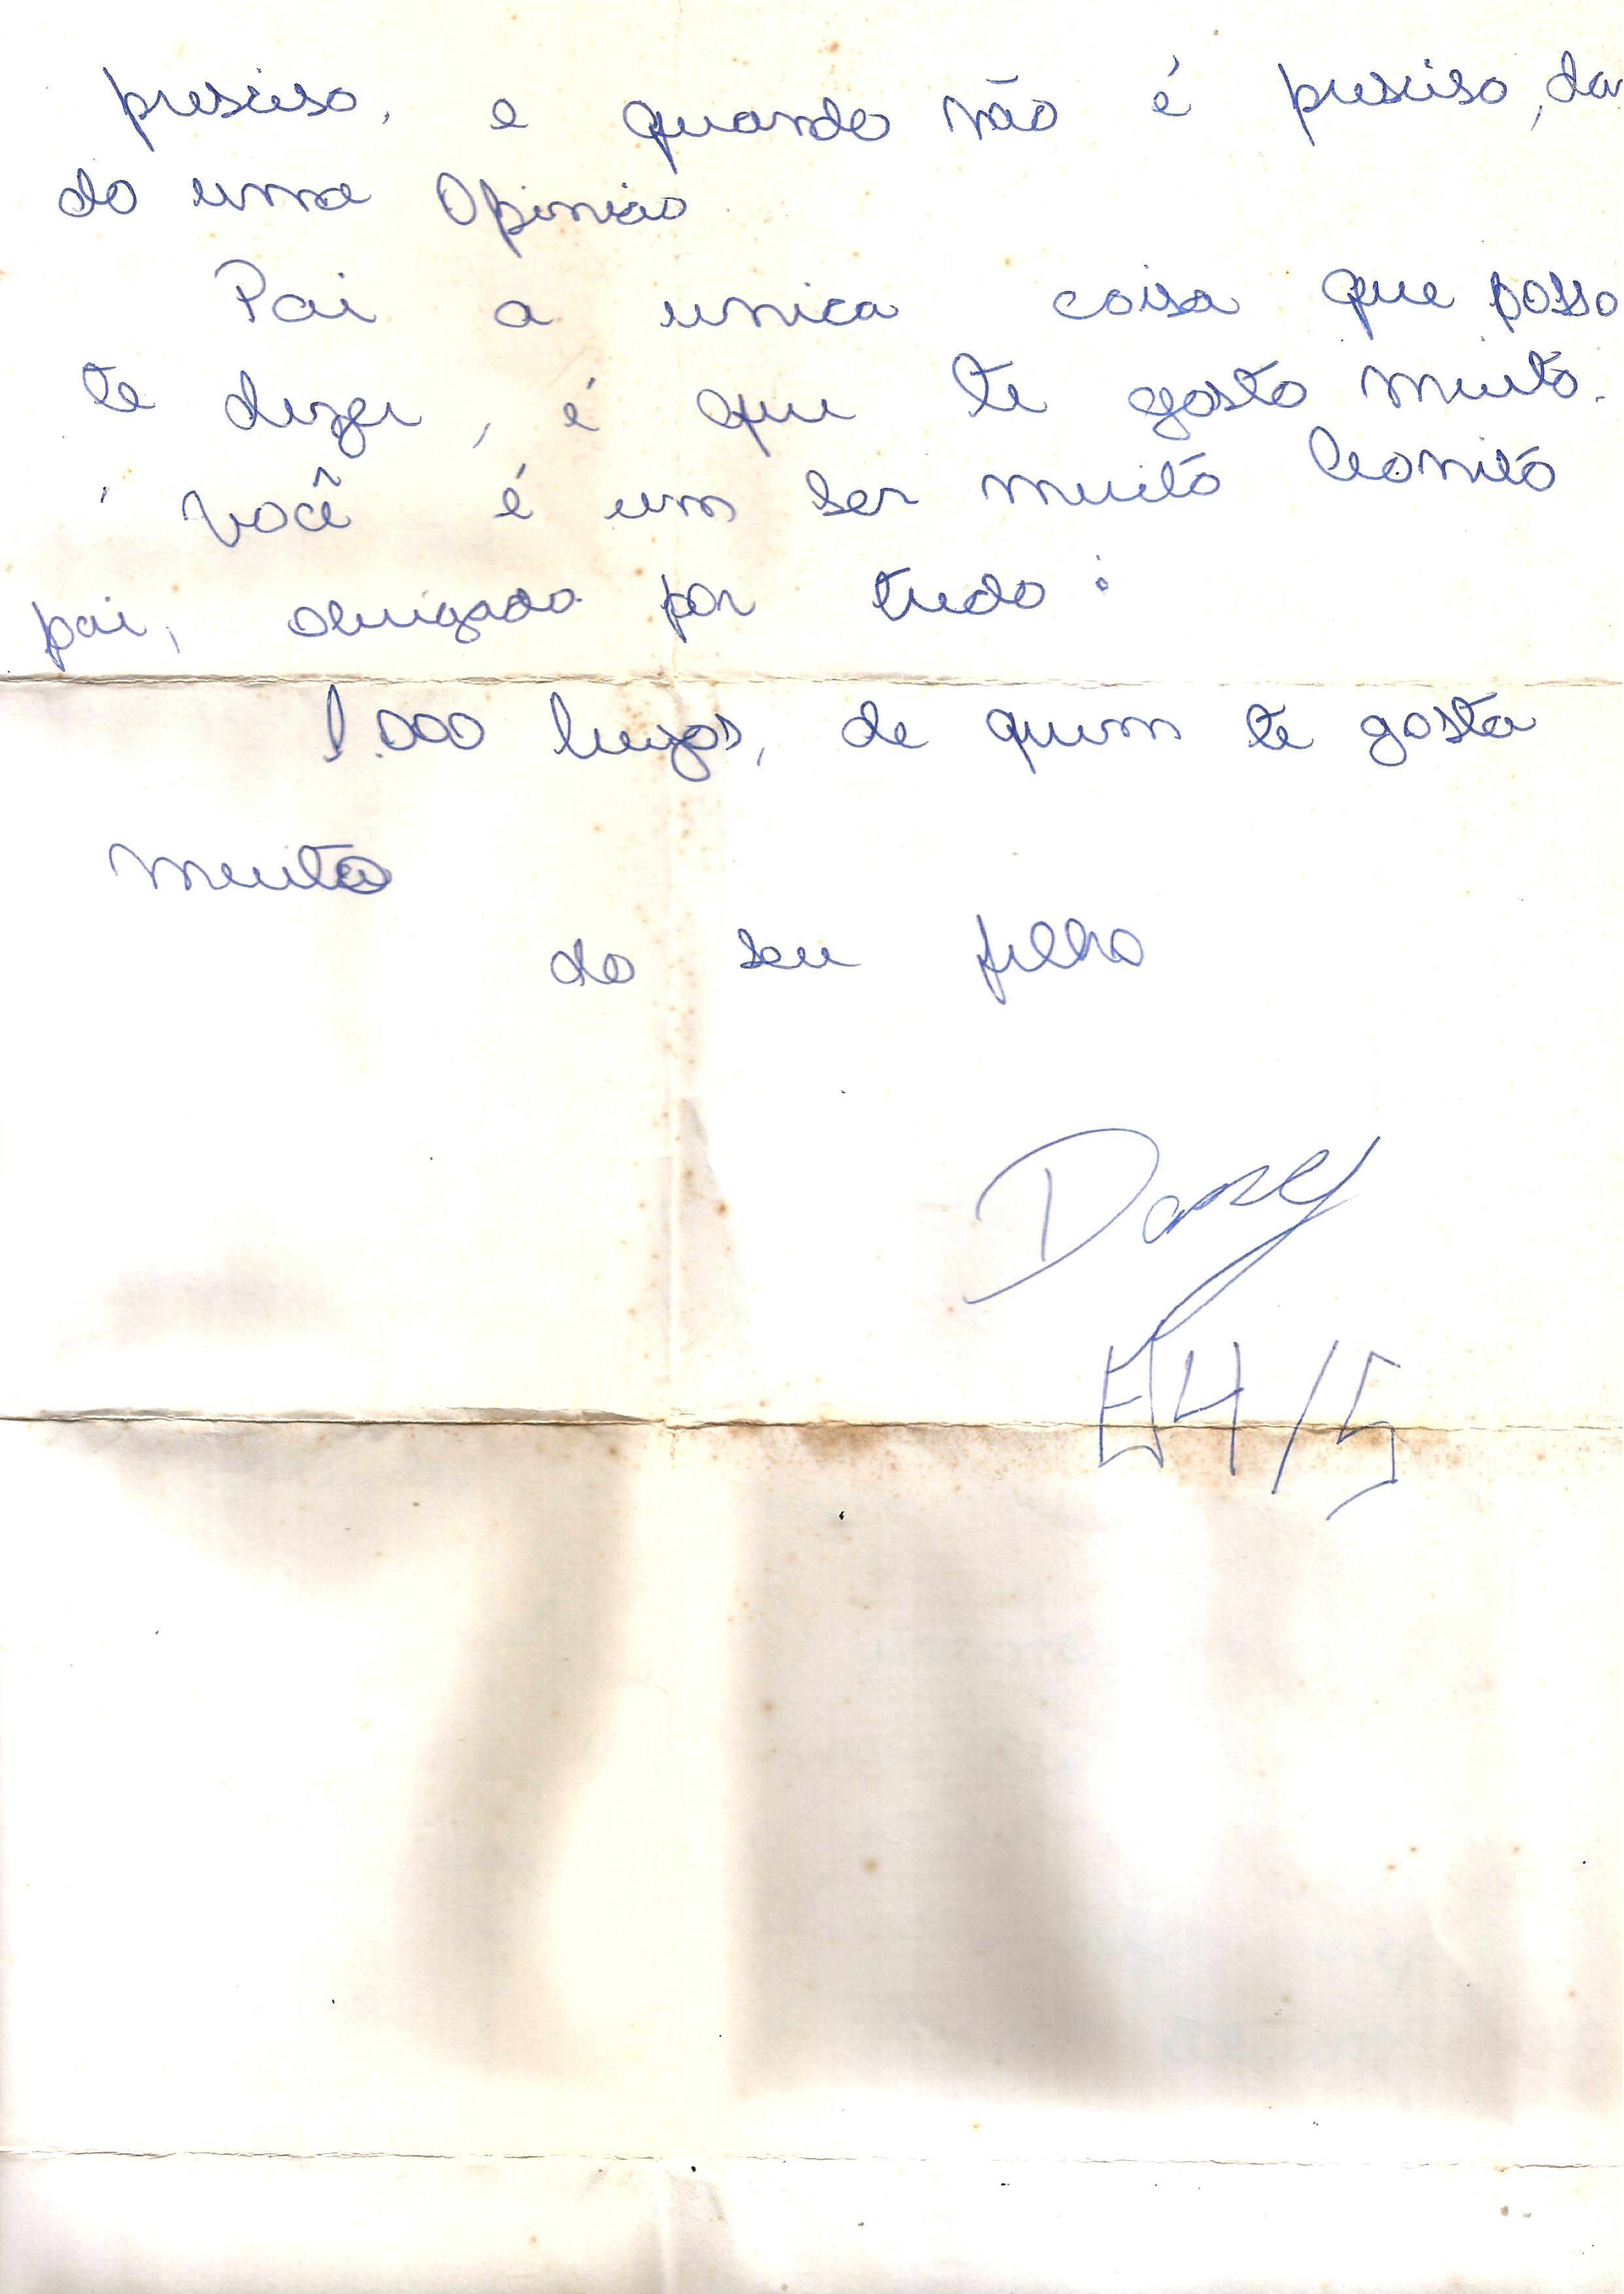 presciso, e quando não é presciso, dan
do uma Opinião
Pai a unica coisa que posso
te dizer, é que te gosto muito.
você é um ser muito bonito
pai, obrigado por tudo:
1.000 beizos, de quem te gosta
muito
do seu filho
Darcy
4/5